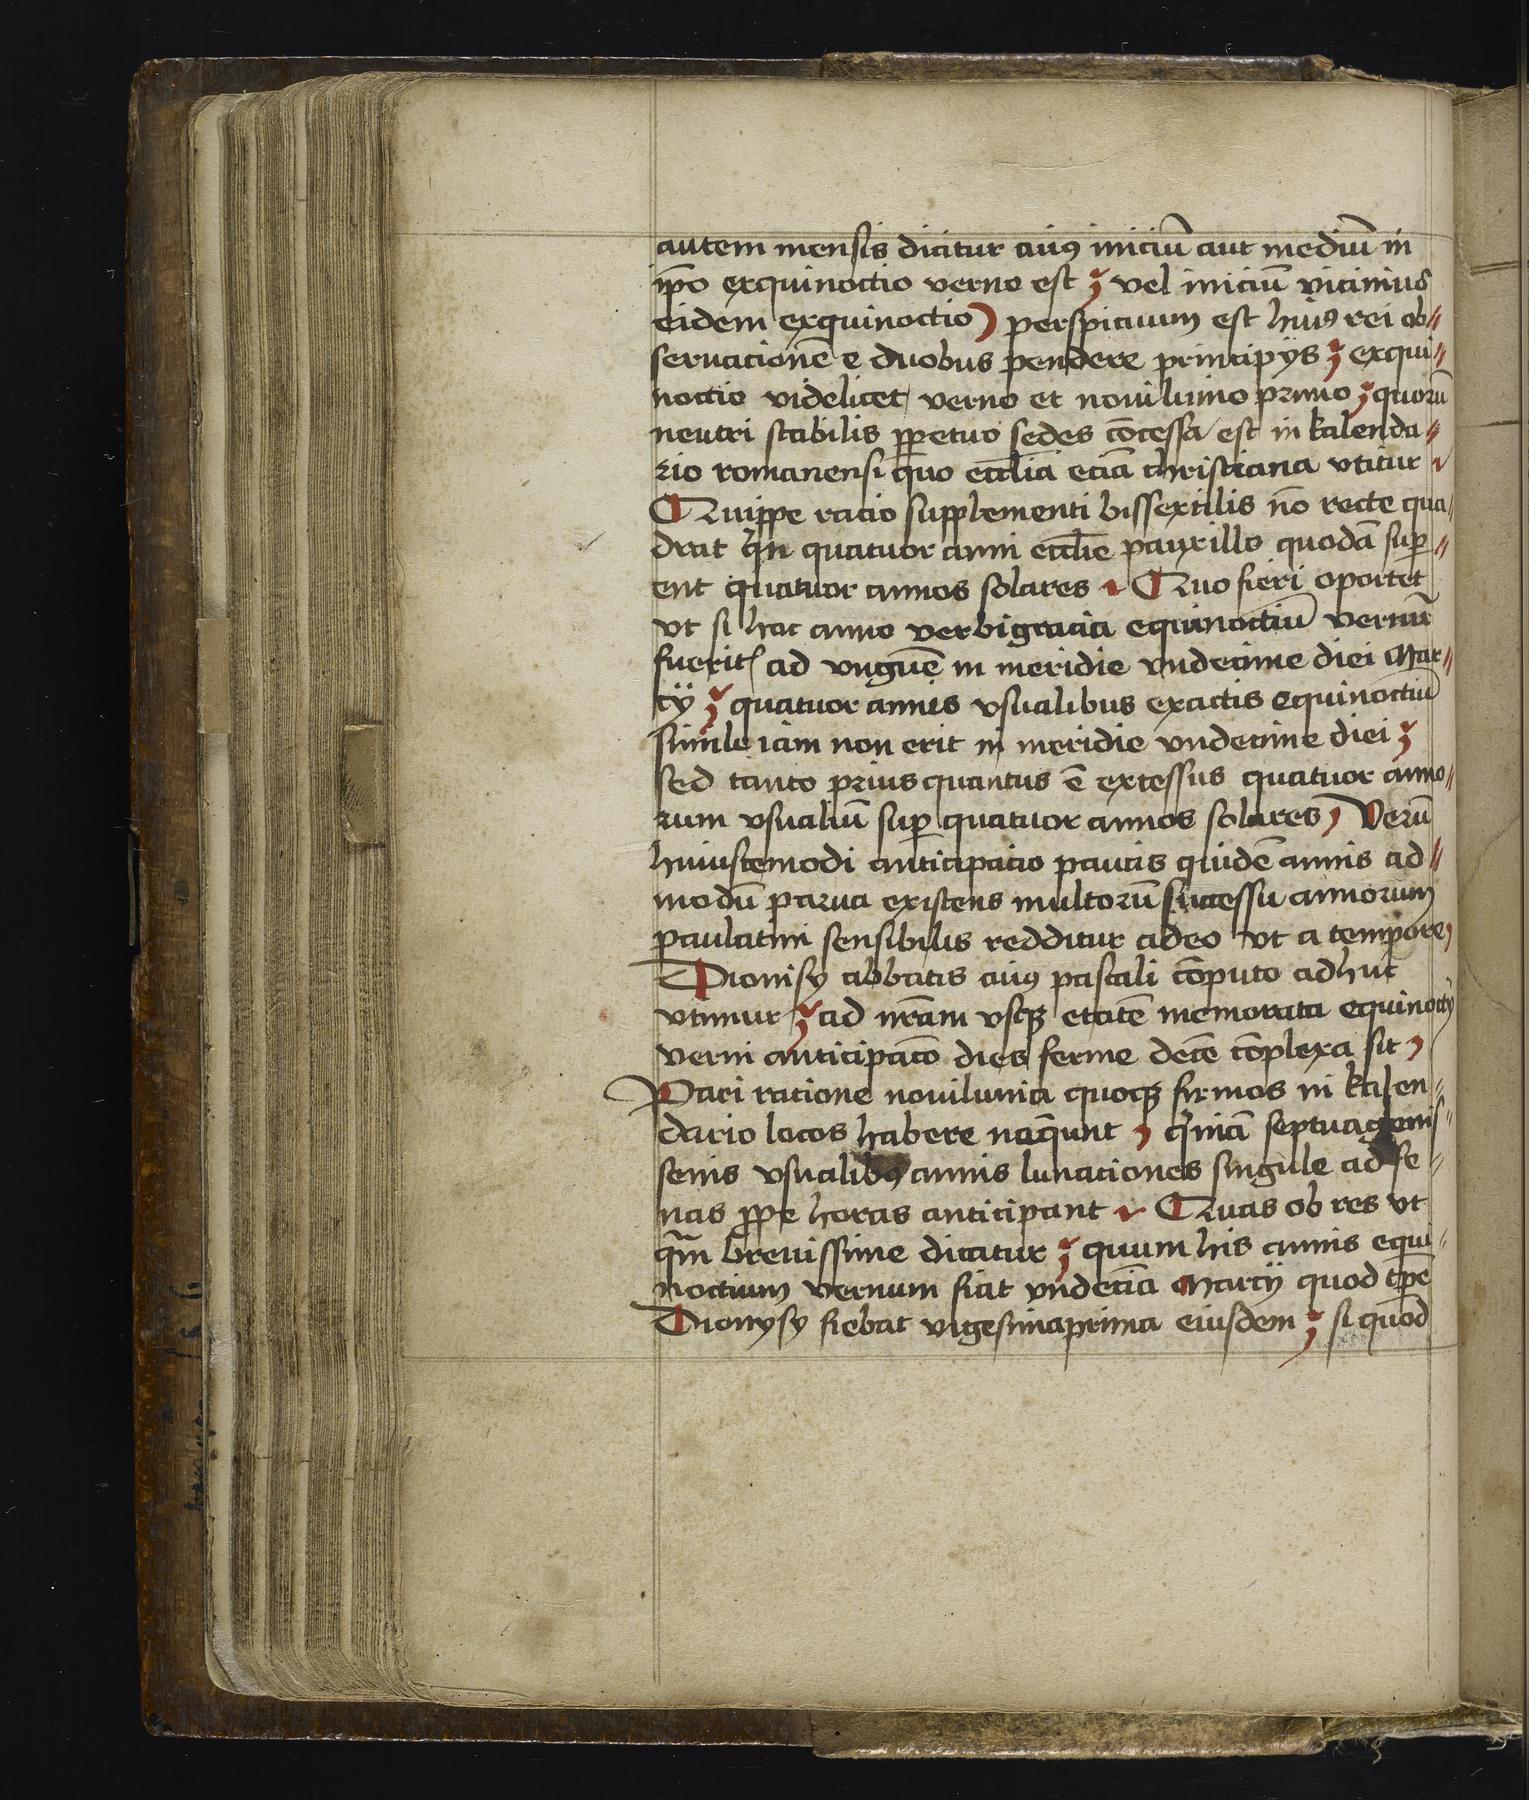 autem mensis dicitur cuiꝰ iniciū aut mediū in
ip̄o exquinoctio verno est ⁊ vel iniciū vicinius
eidem exquinoctio) perspicuum est huiꝰ rei ob〃
seruacionē e duobus pendere principijs ⁊ exqui〃
noctio videlicet verno et nouilunio primo ⁊ quorū
neutri stabilis ꝑpetuo sedes cōcessa est in kalenda〃
rio romanensi quo eccl̄ia eciā christiana vtitur
Quippe racio supplementi bissextilis nō recte qua〃
drat qn̄ quatuor anni eccl̄ie pauxillo quodā suꝑ〃
ent quatuor annos solares Quo fieri oportet
vt si hoc anno verbigracia equinoctiū vernū
fuerit ad vnguē in meridie vndecime diei Mar〃
cij ⁊ quatuor annis vsualibus exactis equinoctiū
simile iam non erit in meridie vndecime diei ⁊
sed tanto prius quantus ē excessus quatuor anno〃
rum vsualiū suꝑ quatuor annos solares) Verū
huiuscemodi anticipacio paucis quidē annis ad〃
modū parua existens multorū successu annorum
paulatim sensibilis redditur adeo vt a tempore
Dionisy abbatis cuiꝰ pascali cōputo adhuc
vtimur ⁊ ad nr̄am vsqꝫ etatē memorata equinoctij
verni anticipac̄o dies ferme decē cōplexa sit
Pari ratione nouilunia quoqꝫ firmos in kalen〃
dario locos habere neq̄unt qm̄iā septuagenis〃
senis vsualibꝰ annis lunaciones singule ad se〃
nas ꝓpe horas anticipant Quas ob res vt
qm̄ breuissime dicatur ⁊ quum his annis equi〃
noctium vernum fiat vndecīa Marcij quod tp̄e
Dionysy fiebat vigesimaprima eiusdem ⁊ si quod